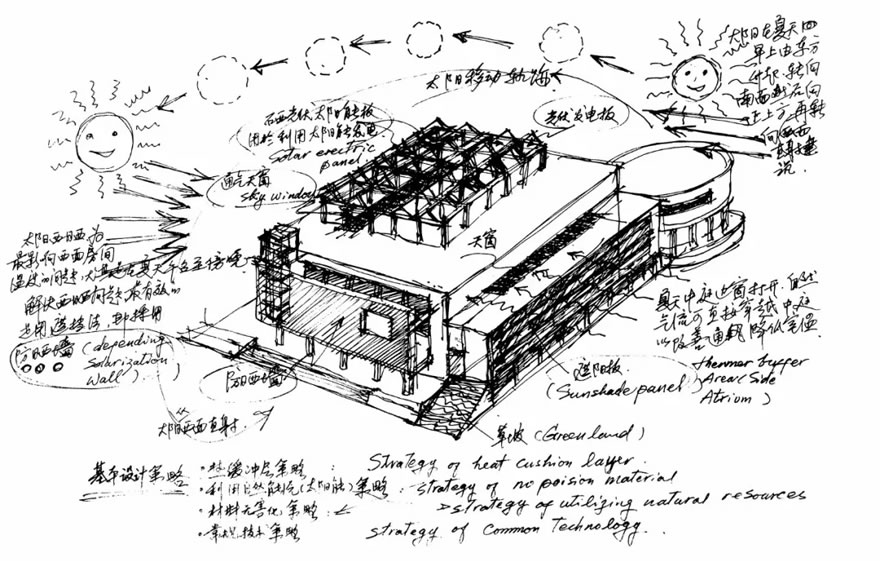 太阳移动轨迹
太阳在夏天间
早上由东方
升起,转向
南面然后向
上方再转
向西面
光伏太阳能板
用于利用太阳能发电
Solar erectric
panel
光伏发电板
通气天窗
sky window
天窗
太阳西日晒为
最影响西面房间
温度的问题,
解决西晒问题最有效的
是用遮挡法,即采用
防晒墙 (depending
Solarization
wall)
防晒墙
太阳西面直射
夏天中庭边窗打开,自然
气流可直接穿越中庭
以改善通风降低室温
遮阳板
(Sunshade panel)
thermor buffer
Area (Side
Atrium)
草坡 (Green land)
基本设计策略
·热缓冲层策略 : Strategy of heat cushion layer.
·利用自然能源(太阳能)策略 : strategy of no poision material
·材料无害化策略 : strategy of utilizing natural resources
·常规技术策略 strategy of Common Technology.